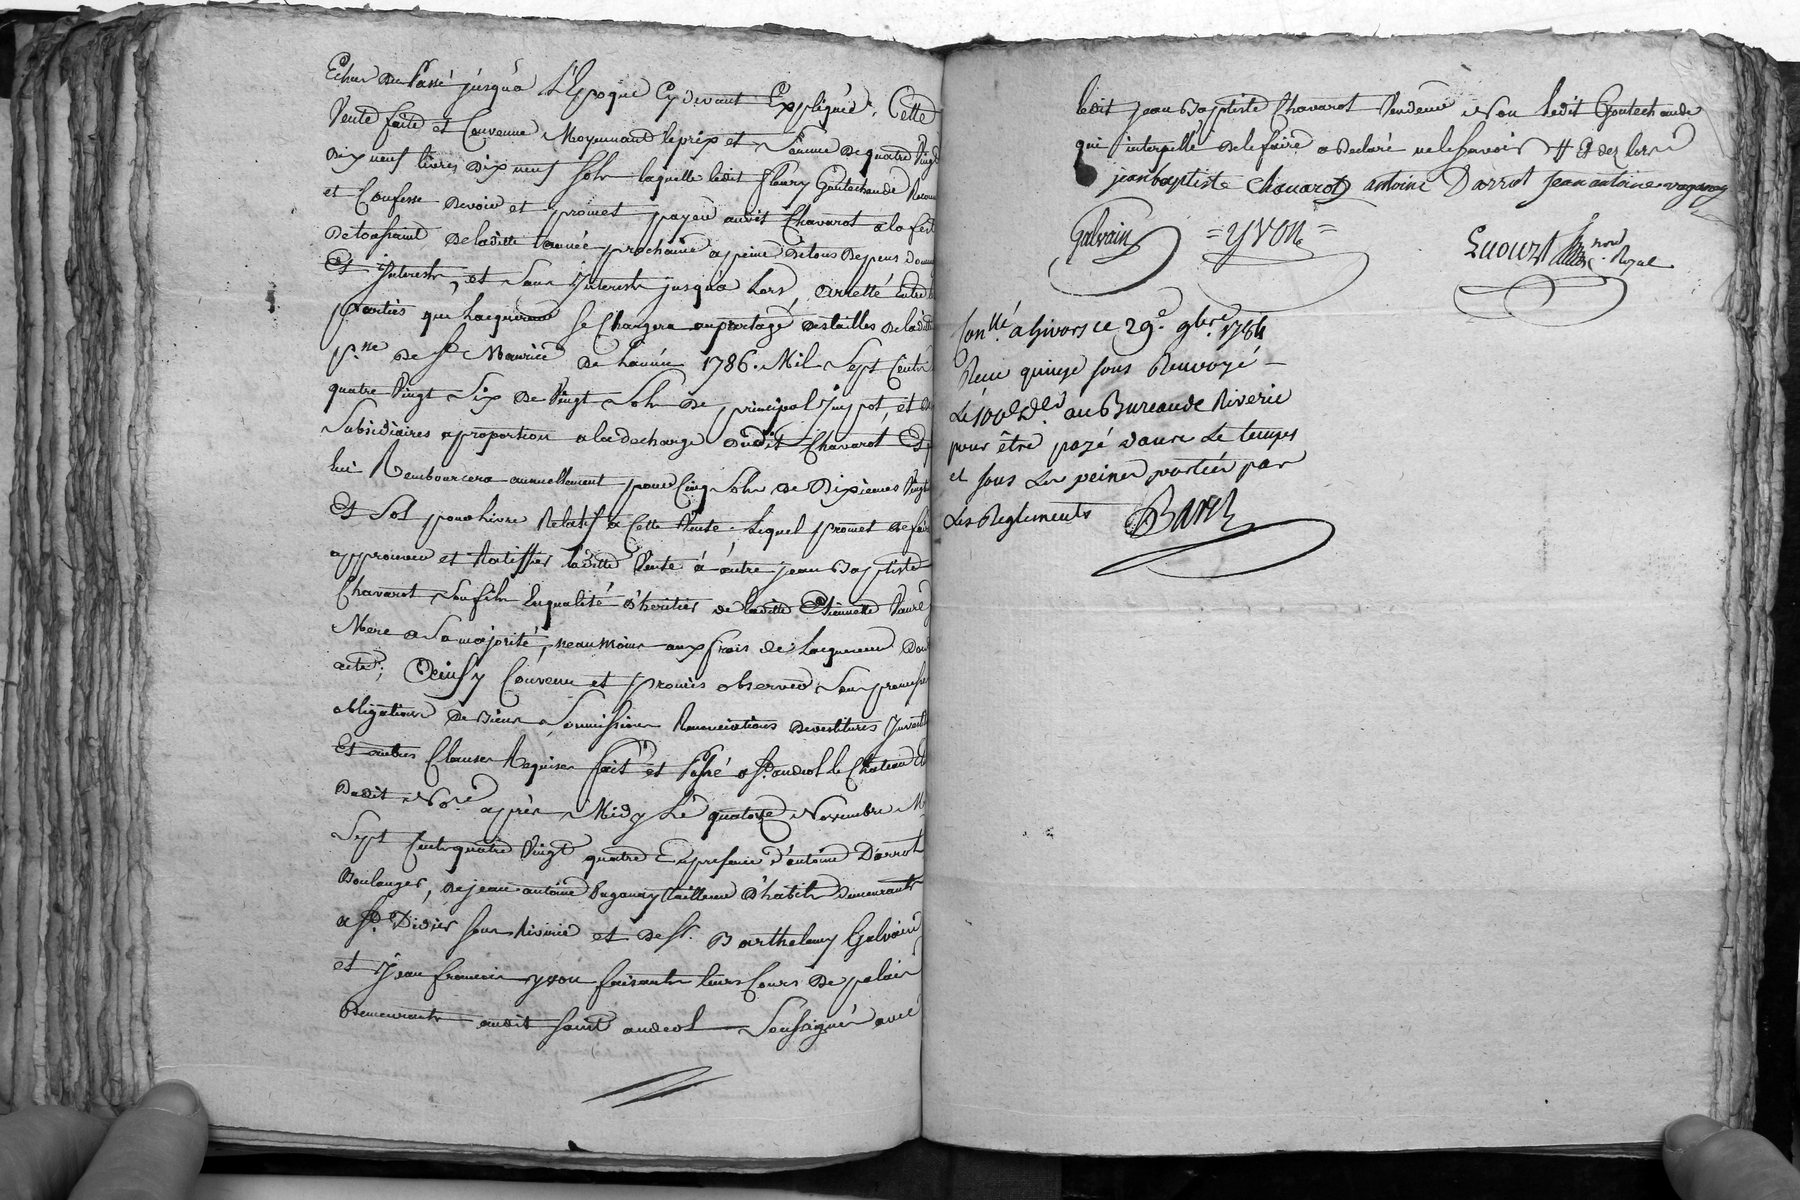 Echus De Passé jusqu'à L'Epoque Cydevant Expliquée. Cette
Vente faite et Convenue Moyennant le prix et Somme De quatre Vingt
Dix neuf livres Dix neuf Sols laquelle ledit fleury Goutechaude
et Confesse devoir et promet payer audit Chavarot a la feste
De toussaint De laditte année prochaine a peine De tous Depens
Et Interests, et Sans Interests jusqu'a Lors, arretté Entre les
parties que Lacquereur Se Chargera au partage des tailles De laditte
p.sse De St Maurice De L'année 1786. Mil Sept Cents
quatre Vingt Six De Vingt Sols De principal Impot et
Subsidiaires a proportion a la decharge dudit Chavarot Et
lui Remboursera annuellement pour Cinq Sols De Dixiemes Vingt
Et Sol pour livre Relatif a Cette Vente. Lequel promet De faire
approuver et Ratiffier laditte Vente à autre jean Baptiste
Chavarot Son fils En qualité d'heritier de laditte Etiennette
Mere a Sa majorité, neanmoins aux frais de Lacquereur Dont
acte; Ainsy Convenu et promis observer Sous promesses
obligations De Biens Soumissions Renonciations
Et autres Clauses Requises fait et Passé a St andeol le Chateau
Dudit No.re après Midy Le quatorze Novembre
Sept Cents quatre Vingt quatre En presence d'antoine Darrot
Boulanger, De jean antoine Tailleur D'habits Demeurants
a St. Didier Sous Riverie et De Sr. Barthelemy Galvain
et Jean francois yvon faisants leurs Cours De palais
Demeurants audit Saint andeol Soussignés avec
ledit jean Baptiste Chavarot Vendeur Non ledit Goutechaude
qui interpellé De le faire a Declaré ne le Savoir
jean baptiste chavarot antoine Darrot jean antoine
Galvain = YVON =
No.re Royal
Con.llé a Givors ce 29.e 9bre 1784
Reçu quinze sous Renvoyé
Le 100e D.er au Bureau de Riverie
pour être payé dans Le temps
et sous Les peines portées par
Les Reglements